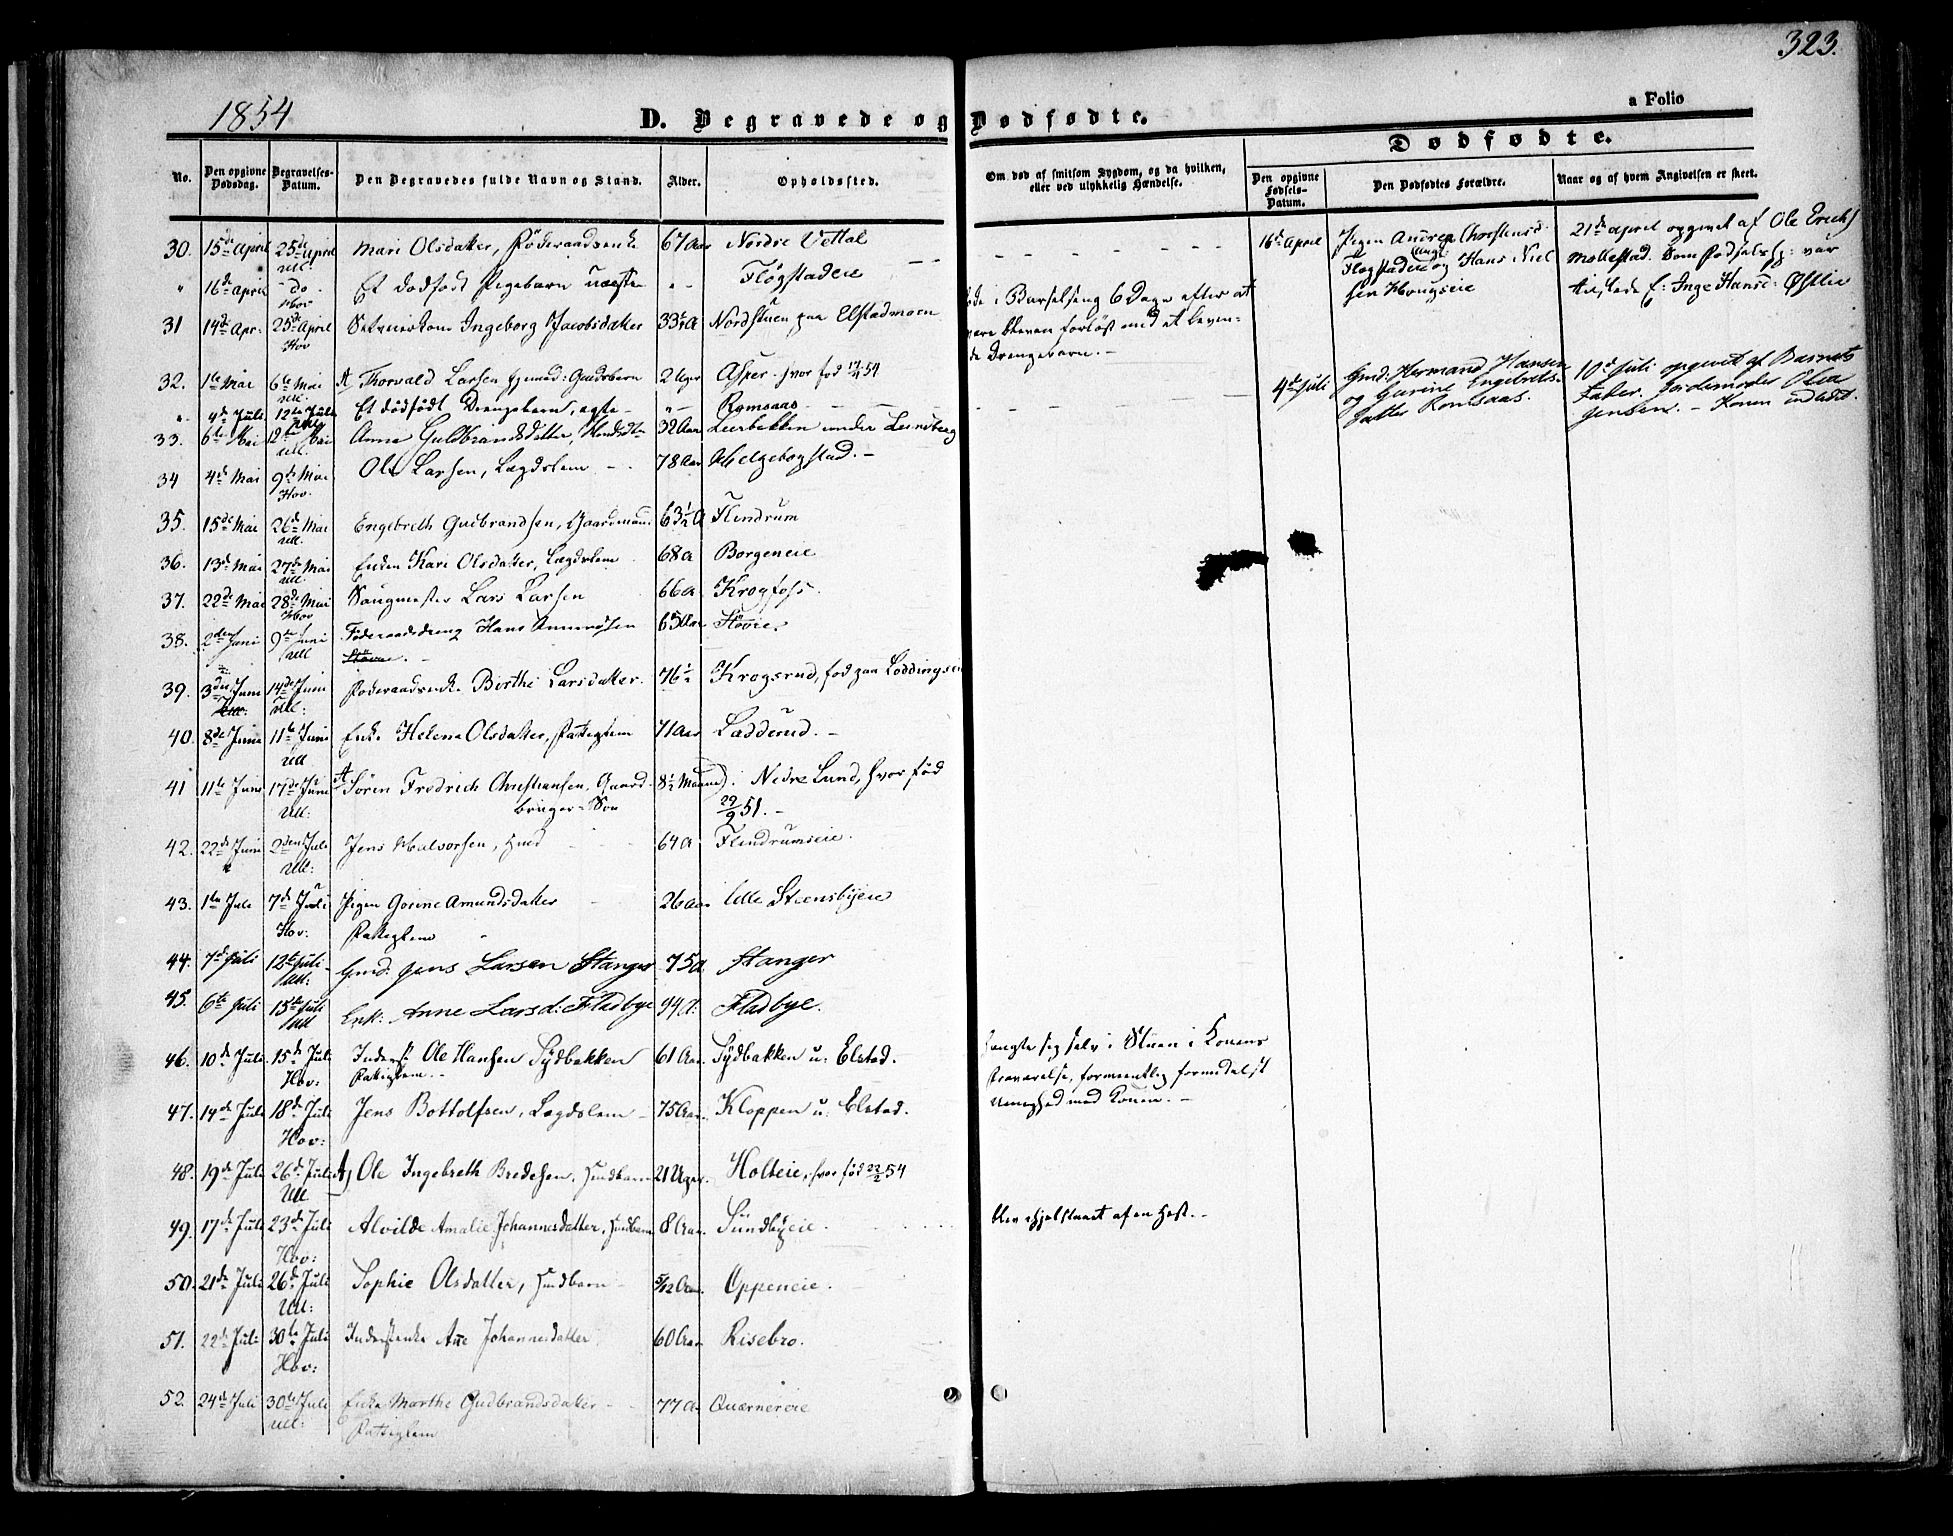 323.
1854
a Folio
D. Begravede og Dødfødte.
Dødfødte.
No.
Den opgivne Dødsdag.
Begravelses-Datum.
Den Begravedes fulde Navn og Stand.
Alder.
Opholdssted.
Om død af smitsom Sygdom, og da hvilken, eller ved ulykkelig Hændelse.
Den opgivne Fødsels-Datum.
Den Dødfødtes Forældre.
Naar og af hvem Angivelsen er skeet.
30. 15de April 25de April Mari Olsdatter, Føderaadsenke 67 Aar Nordre Vettal
Ull.
" 16de April - do - Et dødfødt Pigebarn uægte " - Fløgstadeie
16de April Pigen Andrea Christensd: Fløgstadeie og Hans Niel
sen Haugseie
21de April opgivet af Ole Erichs
Mollestad. Som Fødselshj: var
tilstede E: Inge Hansd: Østlie
Hov
31 14de Apr: 25de April Ingeborg Jacobsdatter 33 A Nordstuen paa Elstadmoen
Hov
døde i Barselseng 6 Dage efter at
være bleven forløst med et leven-
de Drengebarn. -
32. 1te Mai 6te Mai A Thorvald Larsen Gaardbarn 2 Uger Asper - hvor fød 17/4 54
Ull.
" 4de Juli 12te Juli Et dødfødt Drengebarn, ægte - " - Romsaas
4de Juli Gmd: Hermand Hansen
og Gurine Engebrets-
datter Romsaas.
10de Juli opgivet af Barnets
Fader. Jordemoder Olea
Jensen. - Konen indladt.
33. 6te Mai 12te Mai Anne Guldbrandsdatter, 32 Aar Leerbekken under Lundberg
Ull.
34 4de Mai 9de Mai Ole Larsen, Lægdslem - - 78 Aar Helgebogstad. -
Hov.
35. 15de Mai 26de Mai Engebreth Gudbrandsen, Gaardmand 63½ A Flendrum
Ull.
36. 13de Mai 27de Mai Enken Kari Olsdatter, Lægdslem 68 A Borgeneie
Ull
37. 22de Mai 28de Mai Saugmester Lars Larsen 66 A Krogfoss.
Hov
38. 2den Juni 9de Juni Føderaadsdreng Hans 65 Aar Hovie.
Ull
39. 3die Juni 14de Juni Føderaadsenke Birthe Larsdatter. 76½ Krogsrud, fød paa Loddingseie
Ull:
40. 8de Juni 11te Juni Enke Helene Olsdatter, Fattiglem 71 Aar Ladderud. -
Ull
41 11te Juni 17de Juni A Søren Fredrich Christiansen, Gaard-
bruger-Søn 8½ Maaned. Nedre Lund, hvor fød
Ull: 29/9 51. -
42. 22de Juni 2den Juli Jens Halvorsen, Hmd 64 A Flendrumseie.
Ull:
43. 1te Juli 7de Juli Pigen Gorine Amundsdatter 26 Aar Lille Steensbyeie
Hov: Fattiglem
44. 7de Juli 12te Juli Gmd: Jens Larsen Stanger 75 A Stanger
Ull:
45. 6te Juli 15te Juli Enk: Anne Larsd: Fladbye 94 A. Fladbye.
Ull
46. 10de Juli 15de Juli Inderst Ole Hansen Sydbakken 61 Aar. Sydbakken u: Elstad.
Hov: Fattiglem -
hængte sig selv i Stuen i Konens
Fraværelse, formeentlig formedelst
Uenighed med Konen. -
47. 14de Juli 18de Juli Jens Botholfsen, Lægdslem - 75 Aar. Kloppen u: Elstad.
Hov:
48. 19de Juli 26de Juli A) Ole Ingebreth Bredesen, Huusbarn 21 Uger. Holteie, hvor fød 22/2 54
Ull
49. 17de Juli 23de Juli Alvilde Amalie Johannesdatter, Huusbarn 8 Aar. Sundbyeie.
Hov:
blev ihjelslaaet af en Hest. -
50. 21de Juli 26de Juli Sophie Olsdatter, Huusbarn - 5/12 Aar. Oppeneie.
Ull:
51. 22de Juli 30te Juli Inderstenke Ane Johannesdatter 60 Aar Risebro.
Hov:
52. 24de Juli 30te Juli Enke Marthe Gudbrandsdatter - 77 A. Quærnereie
Ull: Fattiglem